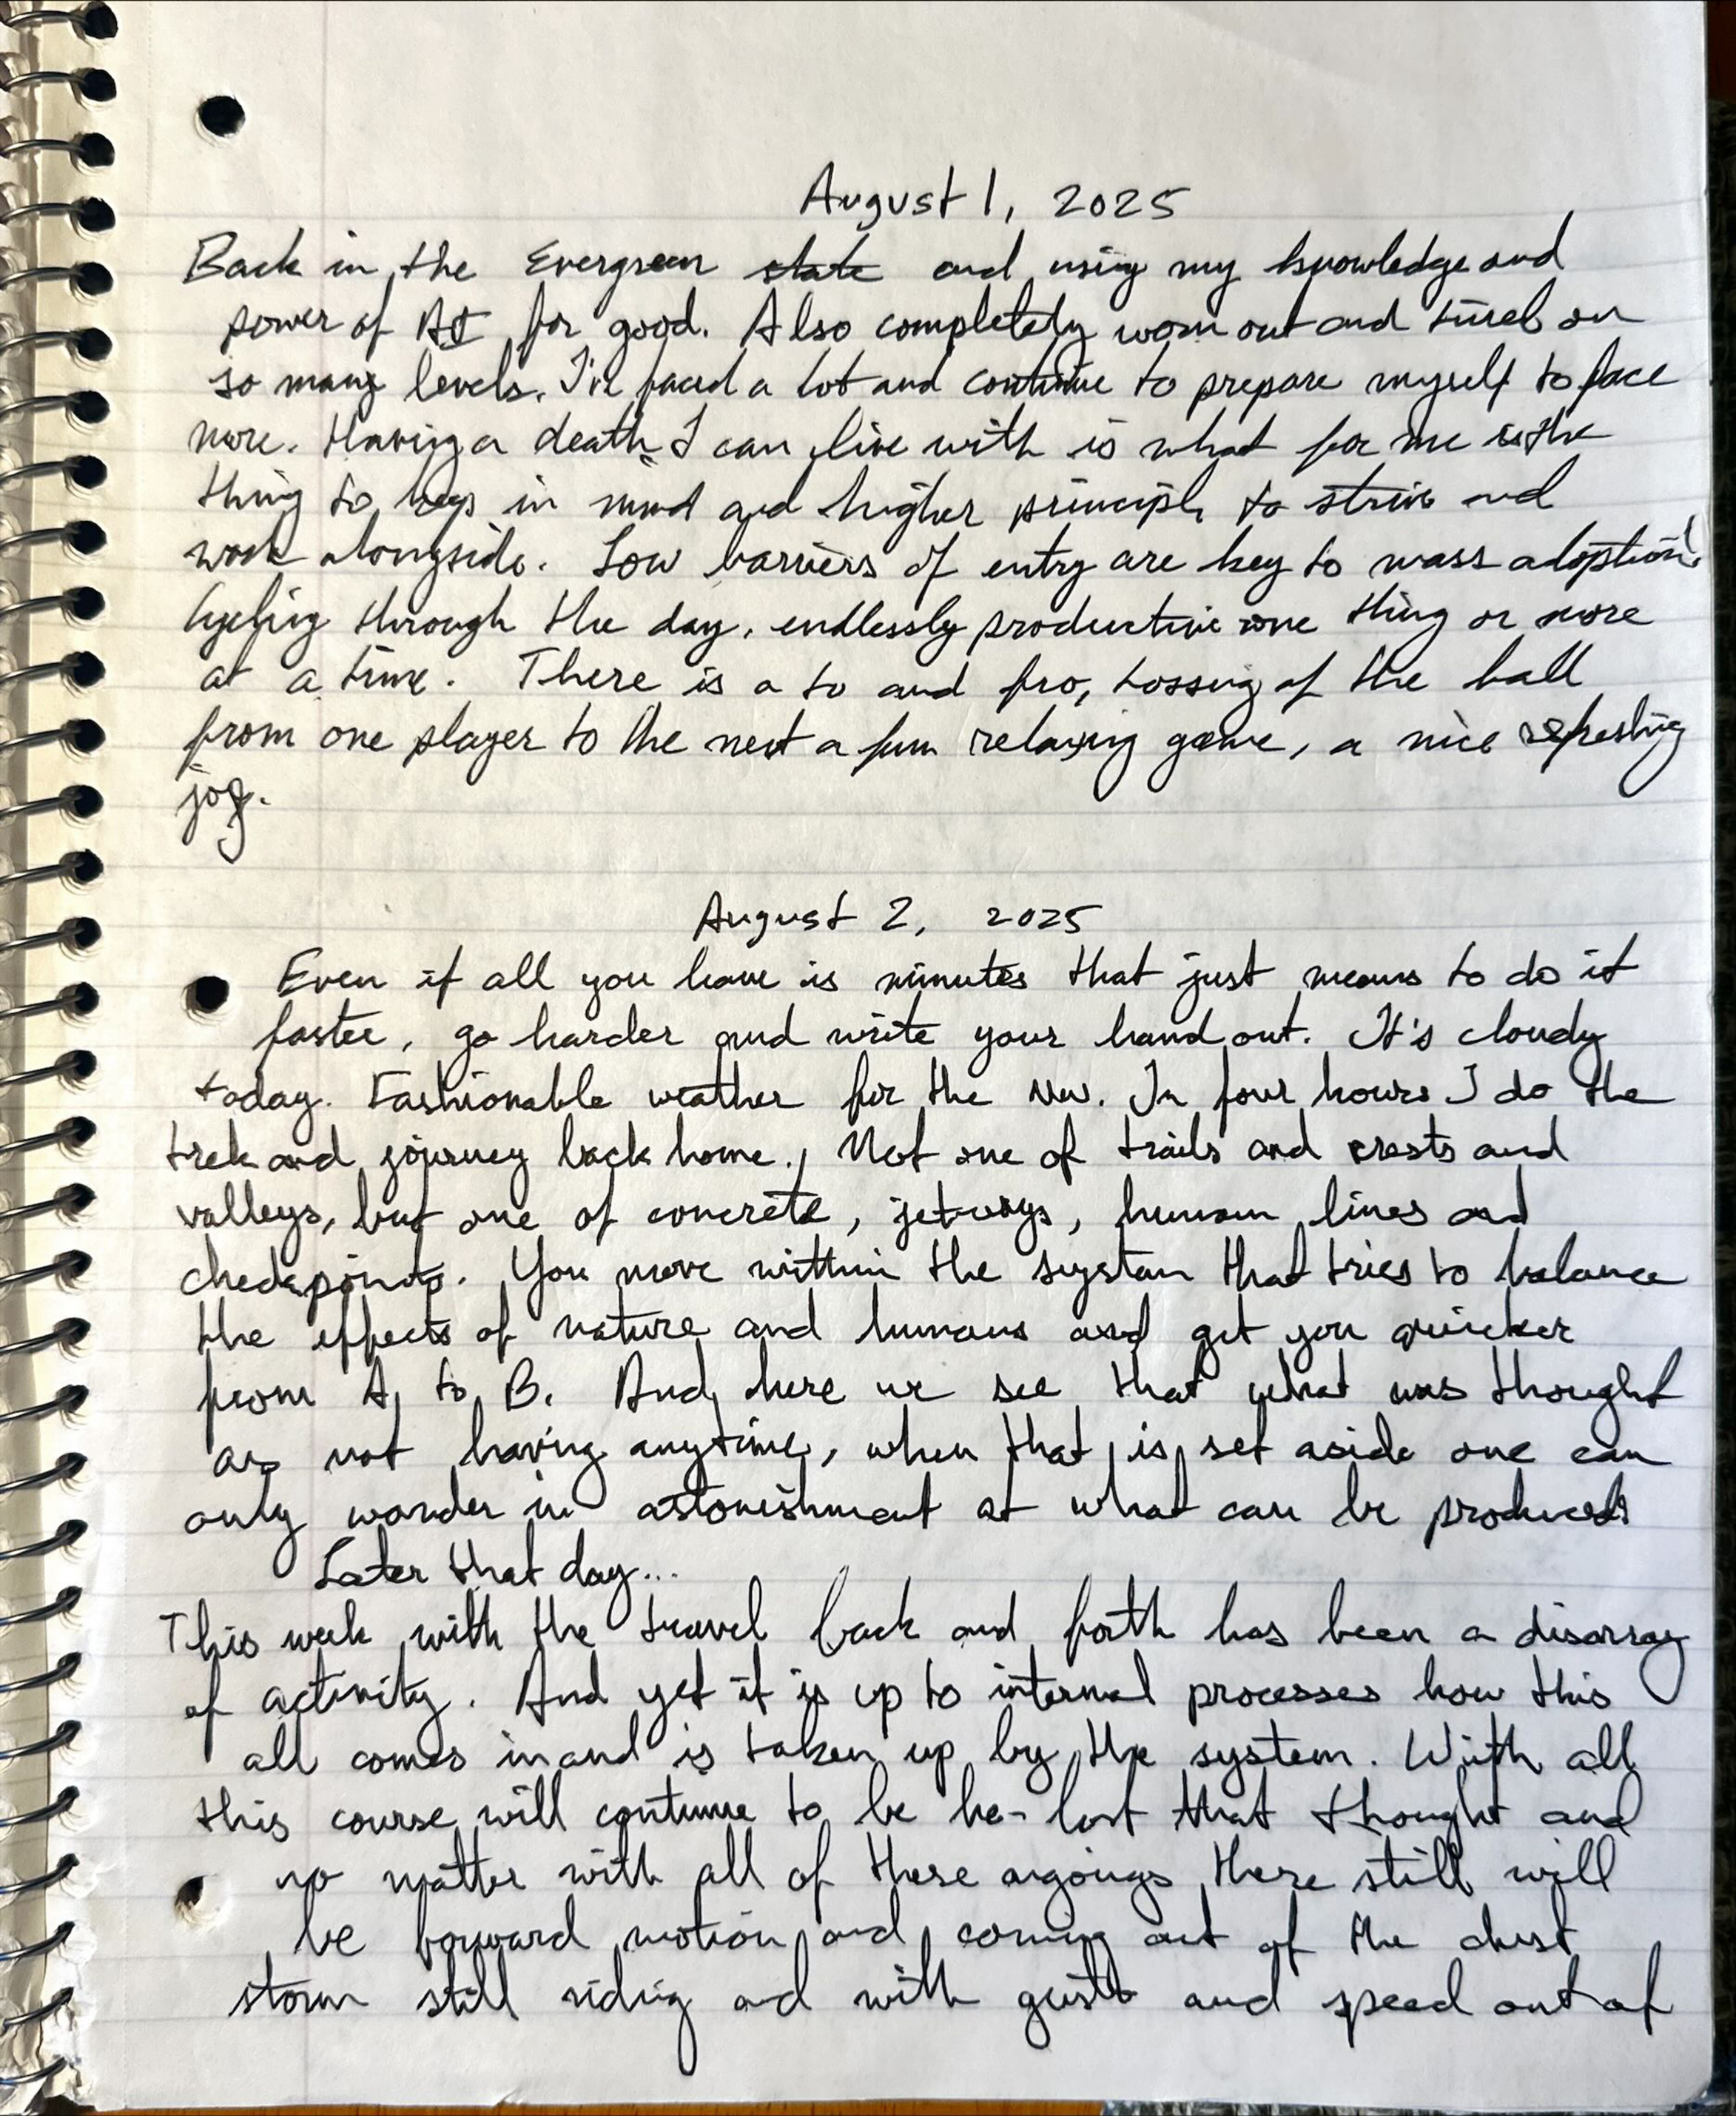 August 1, 2025
Back in the Evergreen state and using my knowledge and
power of AI for good. Also completely worn out and tired on
so many levels. I've faced a lot and continue to prepare myself to face
more. Having a death I can live with is what for me is the
thing to keep in mind and higher principle to strive and
work alongside. Low barriers of entry are key to mass adoption.
through the day, endlessly productive one thing or more
at a time. There is a to and fro, tossing of the ball
from one player to the next a fun relaxing game, a nice refreshing
jog.
August 2, 2025
Even if all you have is minutes that just means to do it
faster, go harder and write your hand out. It's cloudy
today. Fashionable weather for the NW. In four hours I do the
trek and journey back home. Not one of trails and crests and
valleys, but one of concrete, jet-ways, human lines and
checkpoints. You move within the system that tries to balance
the effects of nature and humans and get you quicker
from A to B. And here we see that what was thought
as not having anytime, when that is set aside one can
only wonder in astonishment at what can be produced.
Later that day...
This week with the travel back and forth has been a disarray
of activity. And yet it is up to internal processes how this
all comes in and is taken up by the system. With all
this course will continue to be he- lost that thought and
no matter with all of these ongoings there still will
be forward motion and coming out of the dust
storm still riding and with gusto and speed out of